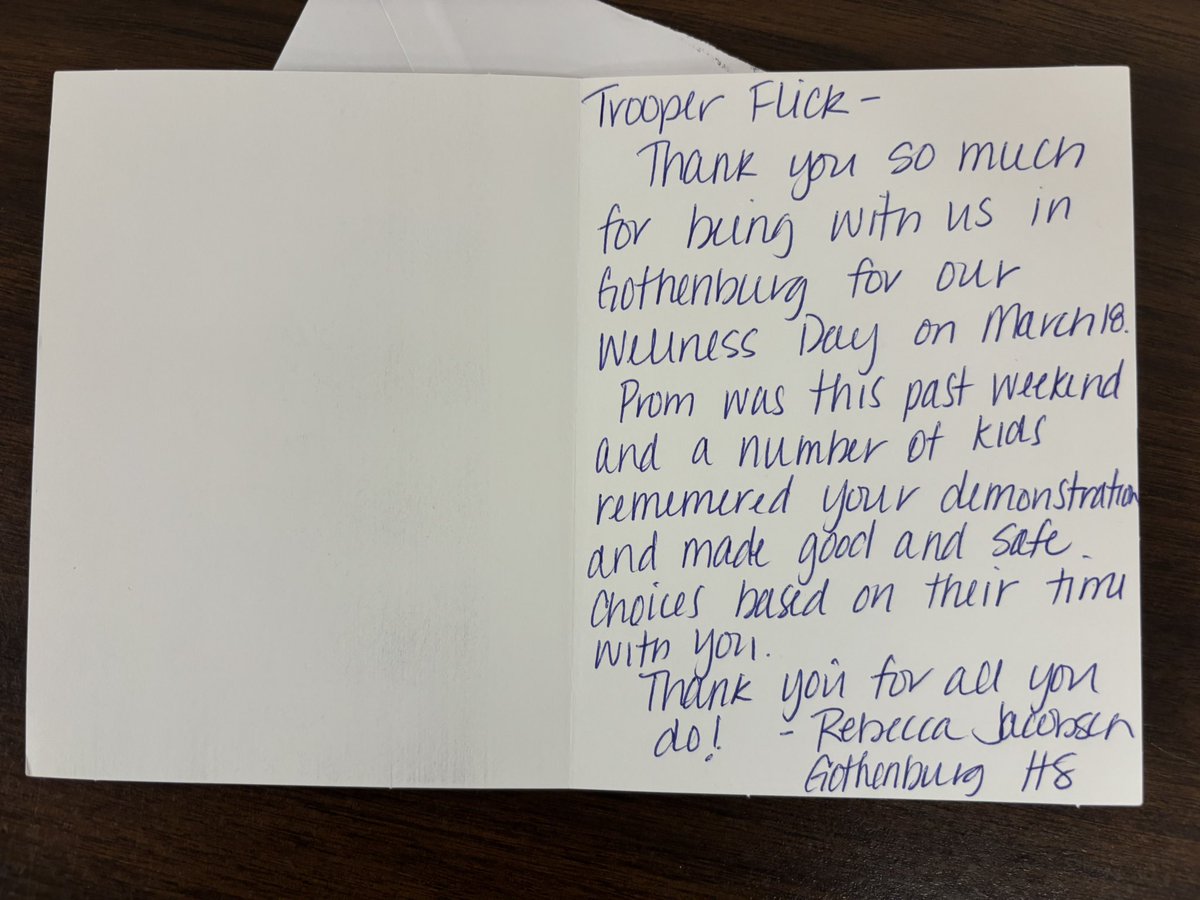 Trooper Flick -
Thank you so much
for being with us in
Gothenburg for our
Wellness Day on March 18.
Prom was this past weekend
and a number of kids
rememered your demonstration
and made good and safe
choices based on their time
with you.
Thank you for all you
do! - Rebecca Jacobsen
Gothenburg HS